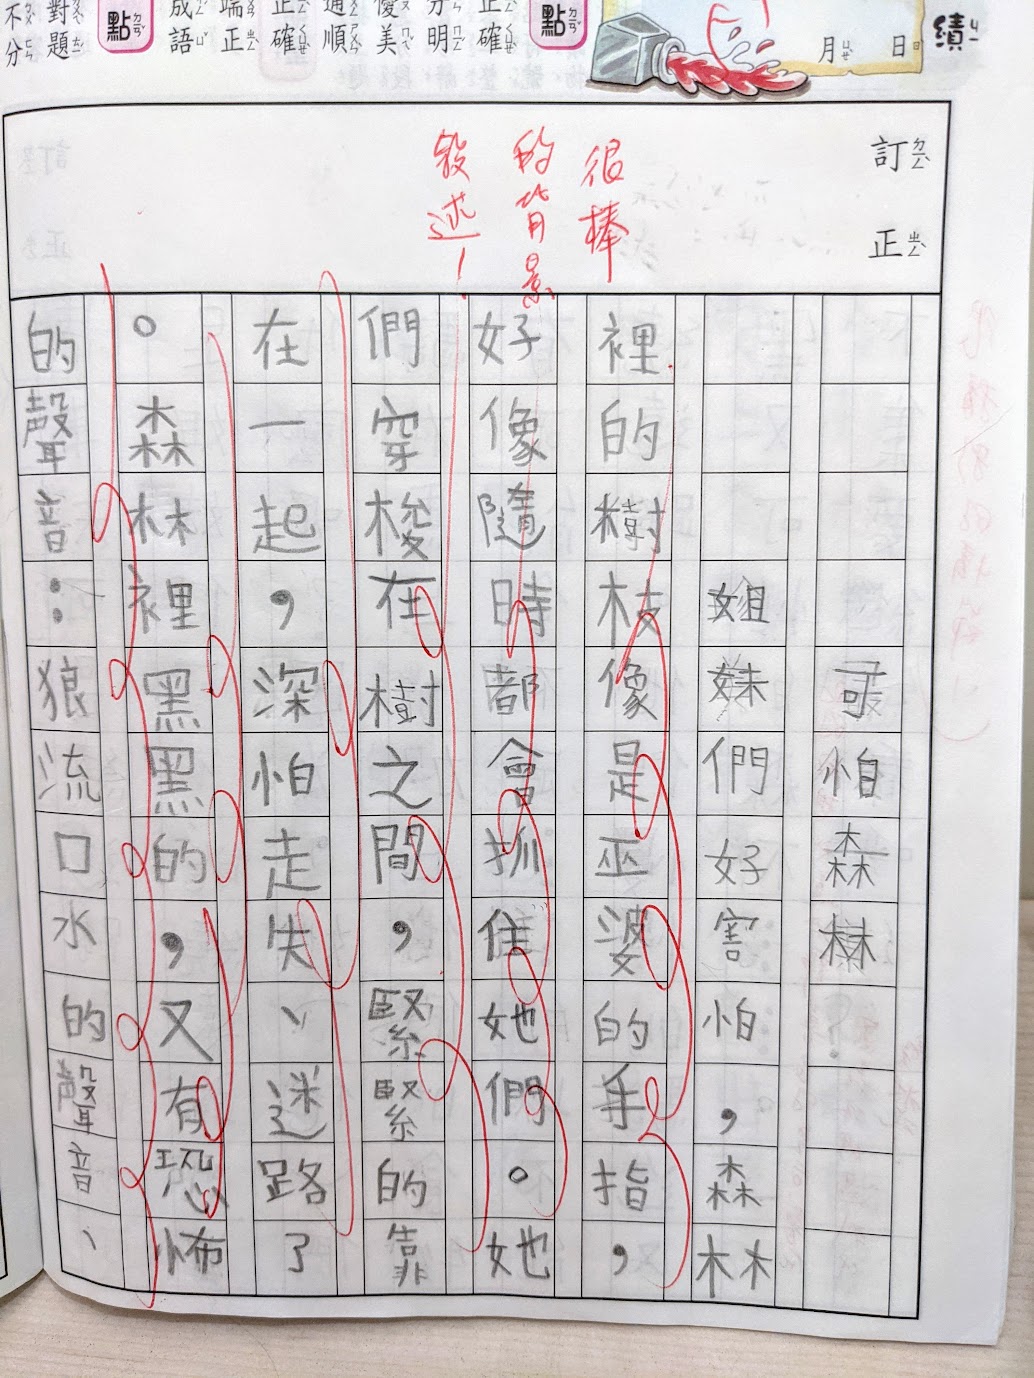 績
月 日
點
正確
分明
優美
通順
正確
端正
成語
點
對題
不分
訂正
很棒
的背景
敘述！
可怕森林
姐妹們好害怕，森林
裡的樹枝像是巫婆的手指，
好像隨時都會抓住她們。她
們穿梭在樹之間，緊緊的靠
在一起，深怕走失、迷路了
。森林裡黑黑的，又有恐怖
的聲音：狼流口水的聲音、